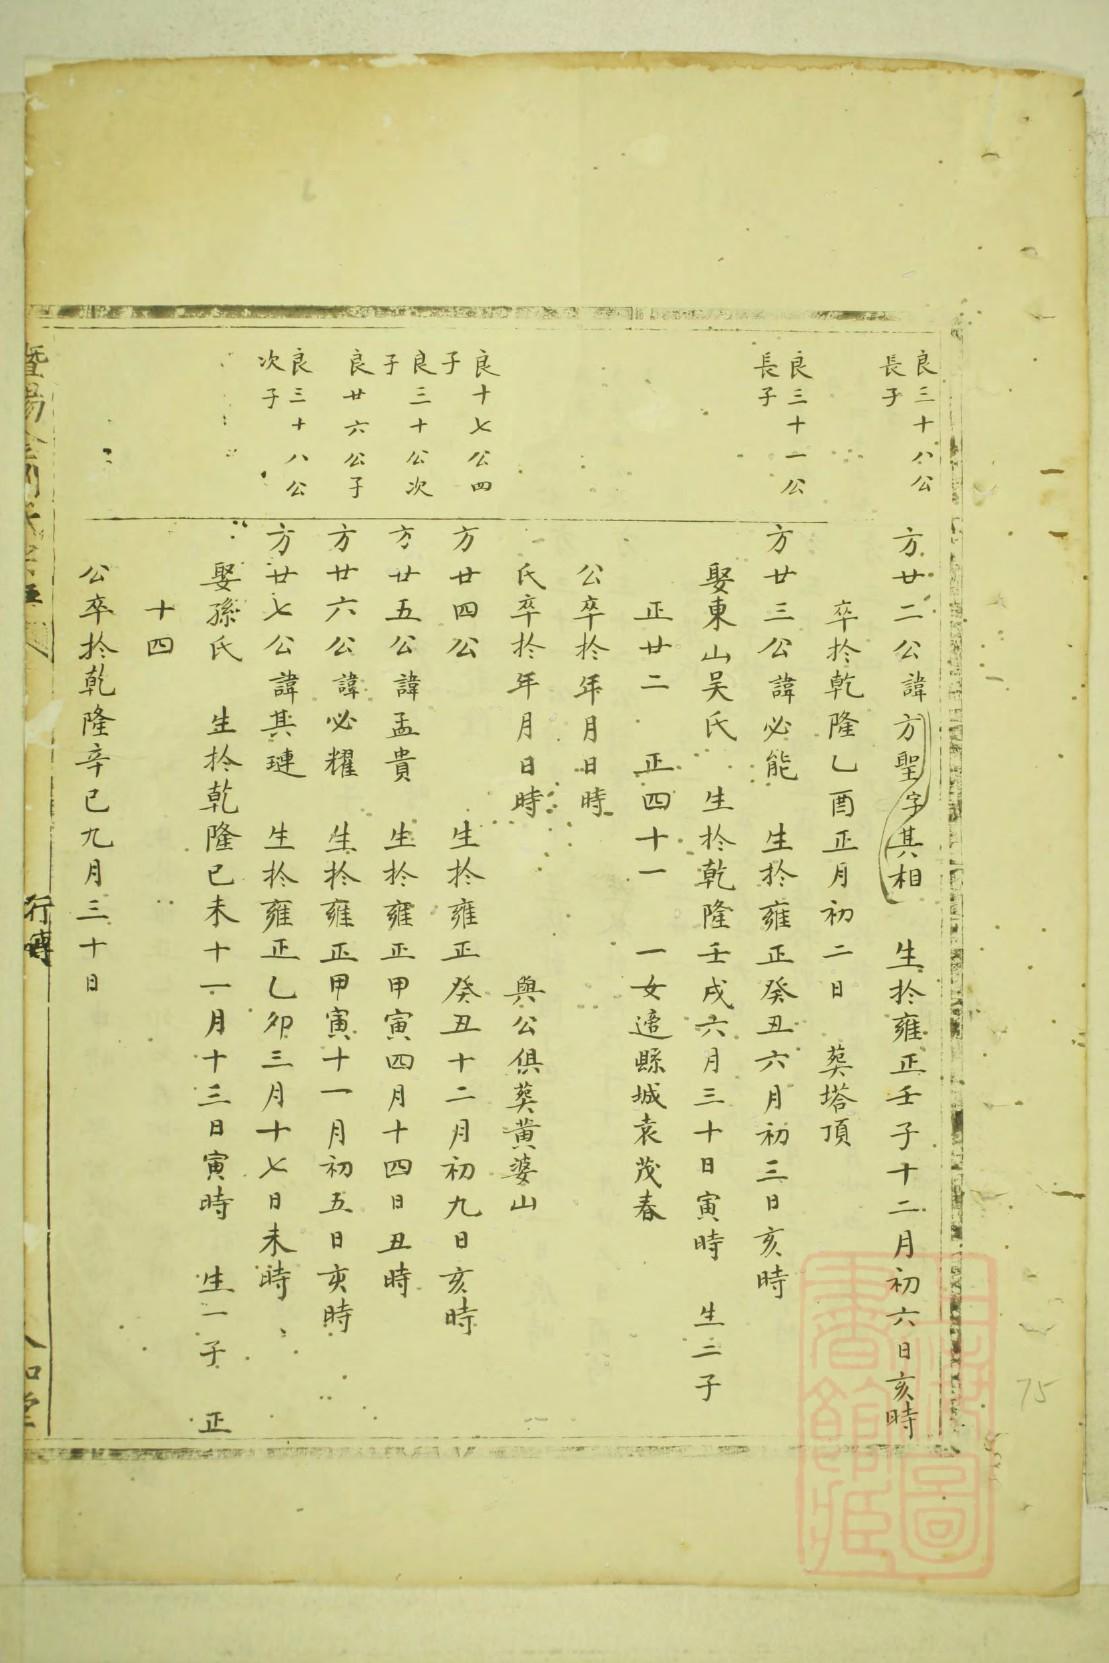 良三十八公
長子
方廿二公諱方聖字其相　生於雍正壬子十二月初六日亥時
卒於乾隆乙酉正月初二日　葬塔頂
良三十一公
長子
方廿三公諱必能　生於雍正癸丑六月初三日亥時
娶東山吴氏　生於乾隆壬戌六月三十日寅時　生二子
正廿二　正四十一　一女適縣城袁茂春
公卒於年月日時
氏卒於年月日時　與公俱葬黄婆山
良十七公四
子
方廿四公　生於雍正癸丑十二月初九日亥時
良三十公次
子
方廿五公諱孟貴　生於雍正甲寅四月十四日丑時
良廿六公子
方廿六公諱必耀　生於雍正甲寅十一月初五日寅時
良三十八公
次子
方廿七公諱其璉　生於雍正乙卯三月十七日未時
娶孫氏　生於乾隆己未十一月十三日寅時　生一子　正
十四
公卒於乾隆辛巳九月三十日
行傳
圖書館藏
75